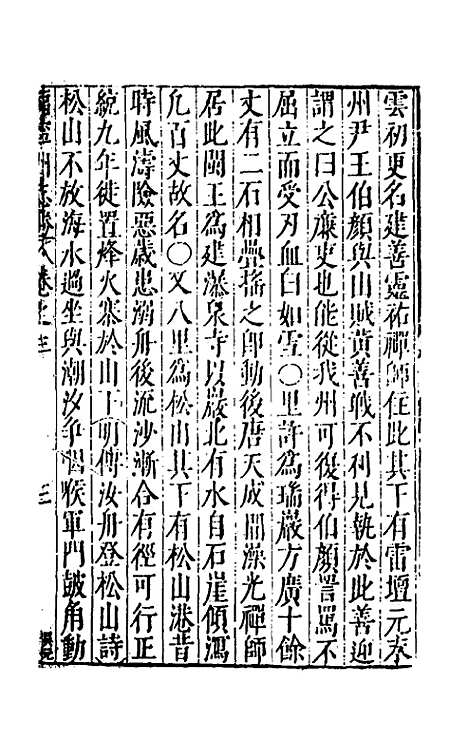 雲初更名建善靈祐禪師住此其下有雷壇元泰
州尹王伯顔與山賊黃善戰不利見執於此善迎
謂之曰公廉吏也能從我州可復得伯顔詈罵不
屈立而受刃血白如雪○里許為瑞巖方廣十餘
丈有二石相疊搖之卽動後唐天成間澡光禪師
居此閩王為建瀑泉寺以巖北有水自石崖傾瀉
凢百丈故名○又八里為松山其下有松山港昔
時風濤險惡歲患溺舟後流沙漸合有徑可行正
統九年徙置烽火寨於山下明傅汝舟登松山詩
松山不放海水過坐與潮汐爭咽喉軍門鼓角動